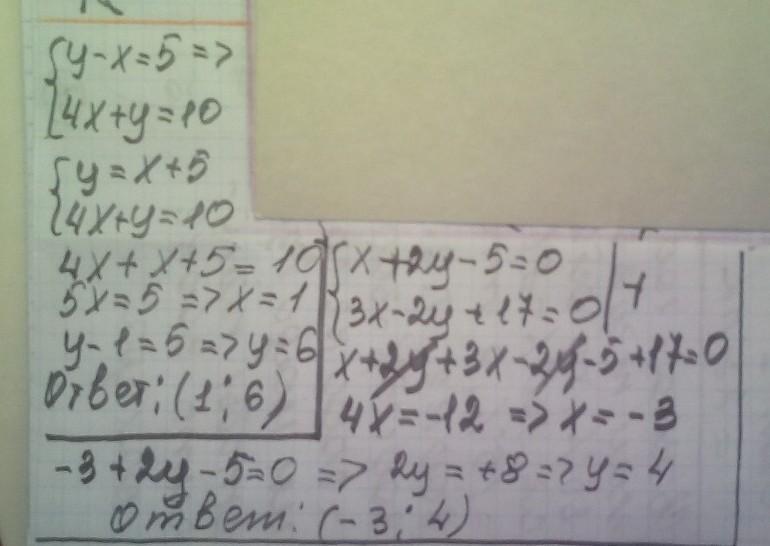 {y-x=5 =>
{4x+y=10
{y=x+5
{4x+y=10
4x+x+5=10
5x=5 => x=1
y-1=5 => y=6
Ответ: (1; 6)
{x+2y-5=0 | +
{3x-2y+17=0
x+2y+3x-2y-5+17=0
4x=-12 => x=-3
-3+2y-5=0 => 2y=+8 => y=4
Ответ: (-3; 4)